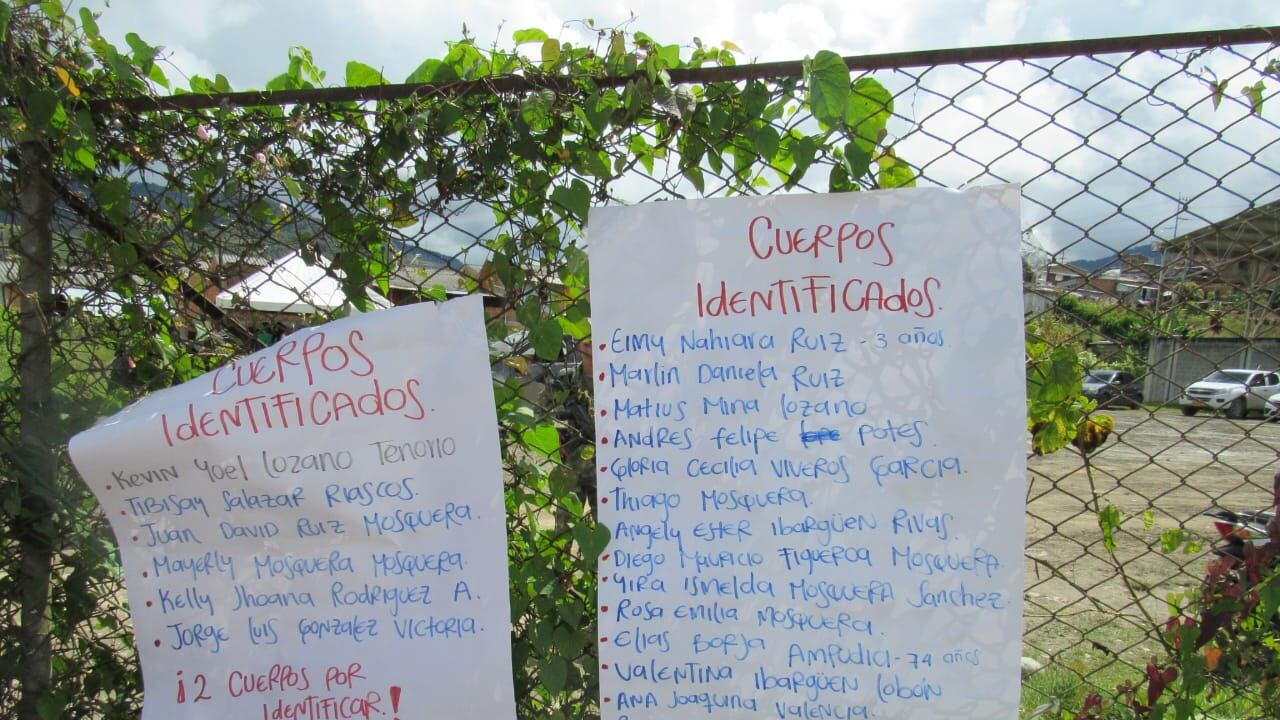 CUERPOS
IDENTIFICADOS.
• KEVIN YOEL LOZANO TENORIO
• TIBISAY SALAZAR RIASCOS.
• JUAN DAVID RUIZ MOSQUERA.
• MAYERLY MOSQUERA MOSQUERA.
• KELLY JHOANA RODRIGUEZ A.
• JORGE LUIS GONZALEZ VICTORIA.
¡2 CUERPOS POR
IDENTIFICAR.!
CUERPOS
IDENTIFICADOS.
• EIMY NAHIARA RUIZ - 3 años.
• MARLIN DANIELA RUIZ
• MATIUS MINA LOZANO
• ANDRES FELIPE POTES.
• GLORIA CECILIA VIVEROS GARCIA.
• THIAGO MOSQUERA.
• ANGELY ESTER IBARGÜEN RIVAS.
• DIEGO MAURICIO FIGUEROA MOSQUERA
• YIRA ISNELDA MOSQUERA SANCHEZ.
• ROSA EMILIA MOSQUERA.
• ELIAS BORJA AMPUDIA - 74 años
• VALENTINA IBARGÜEN LOBÓN
• ANA JOAQUINA VALENCIA.